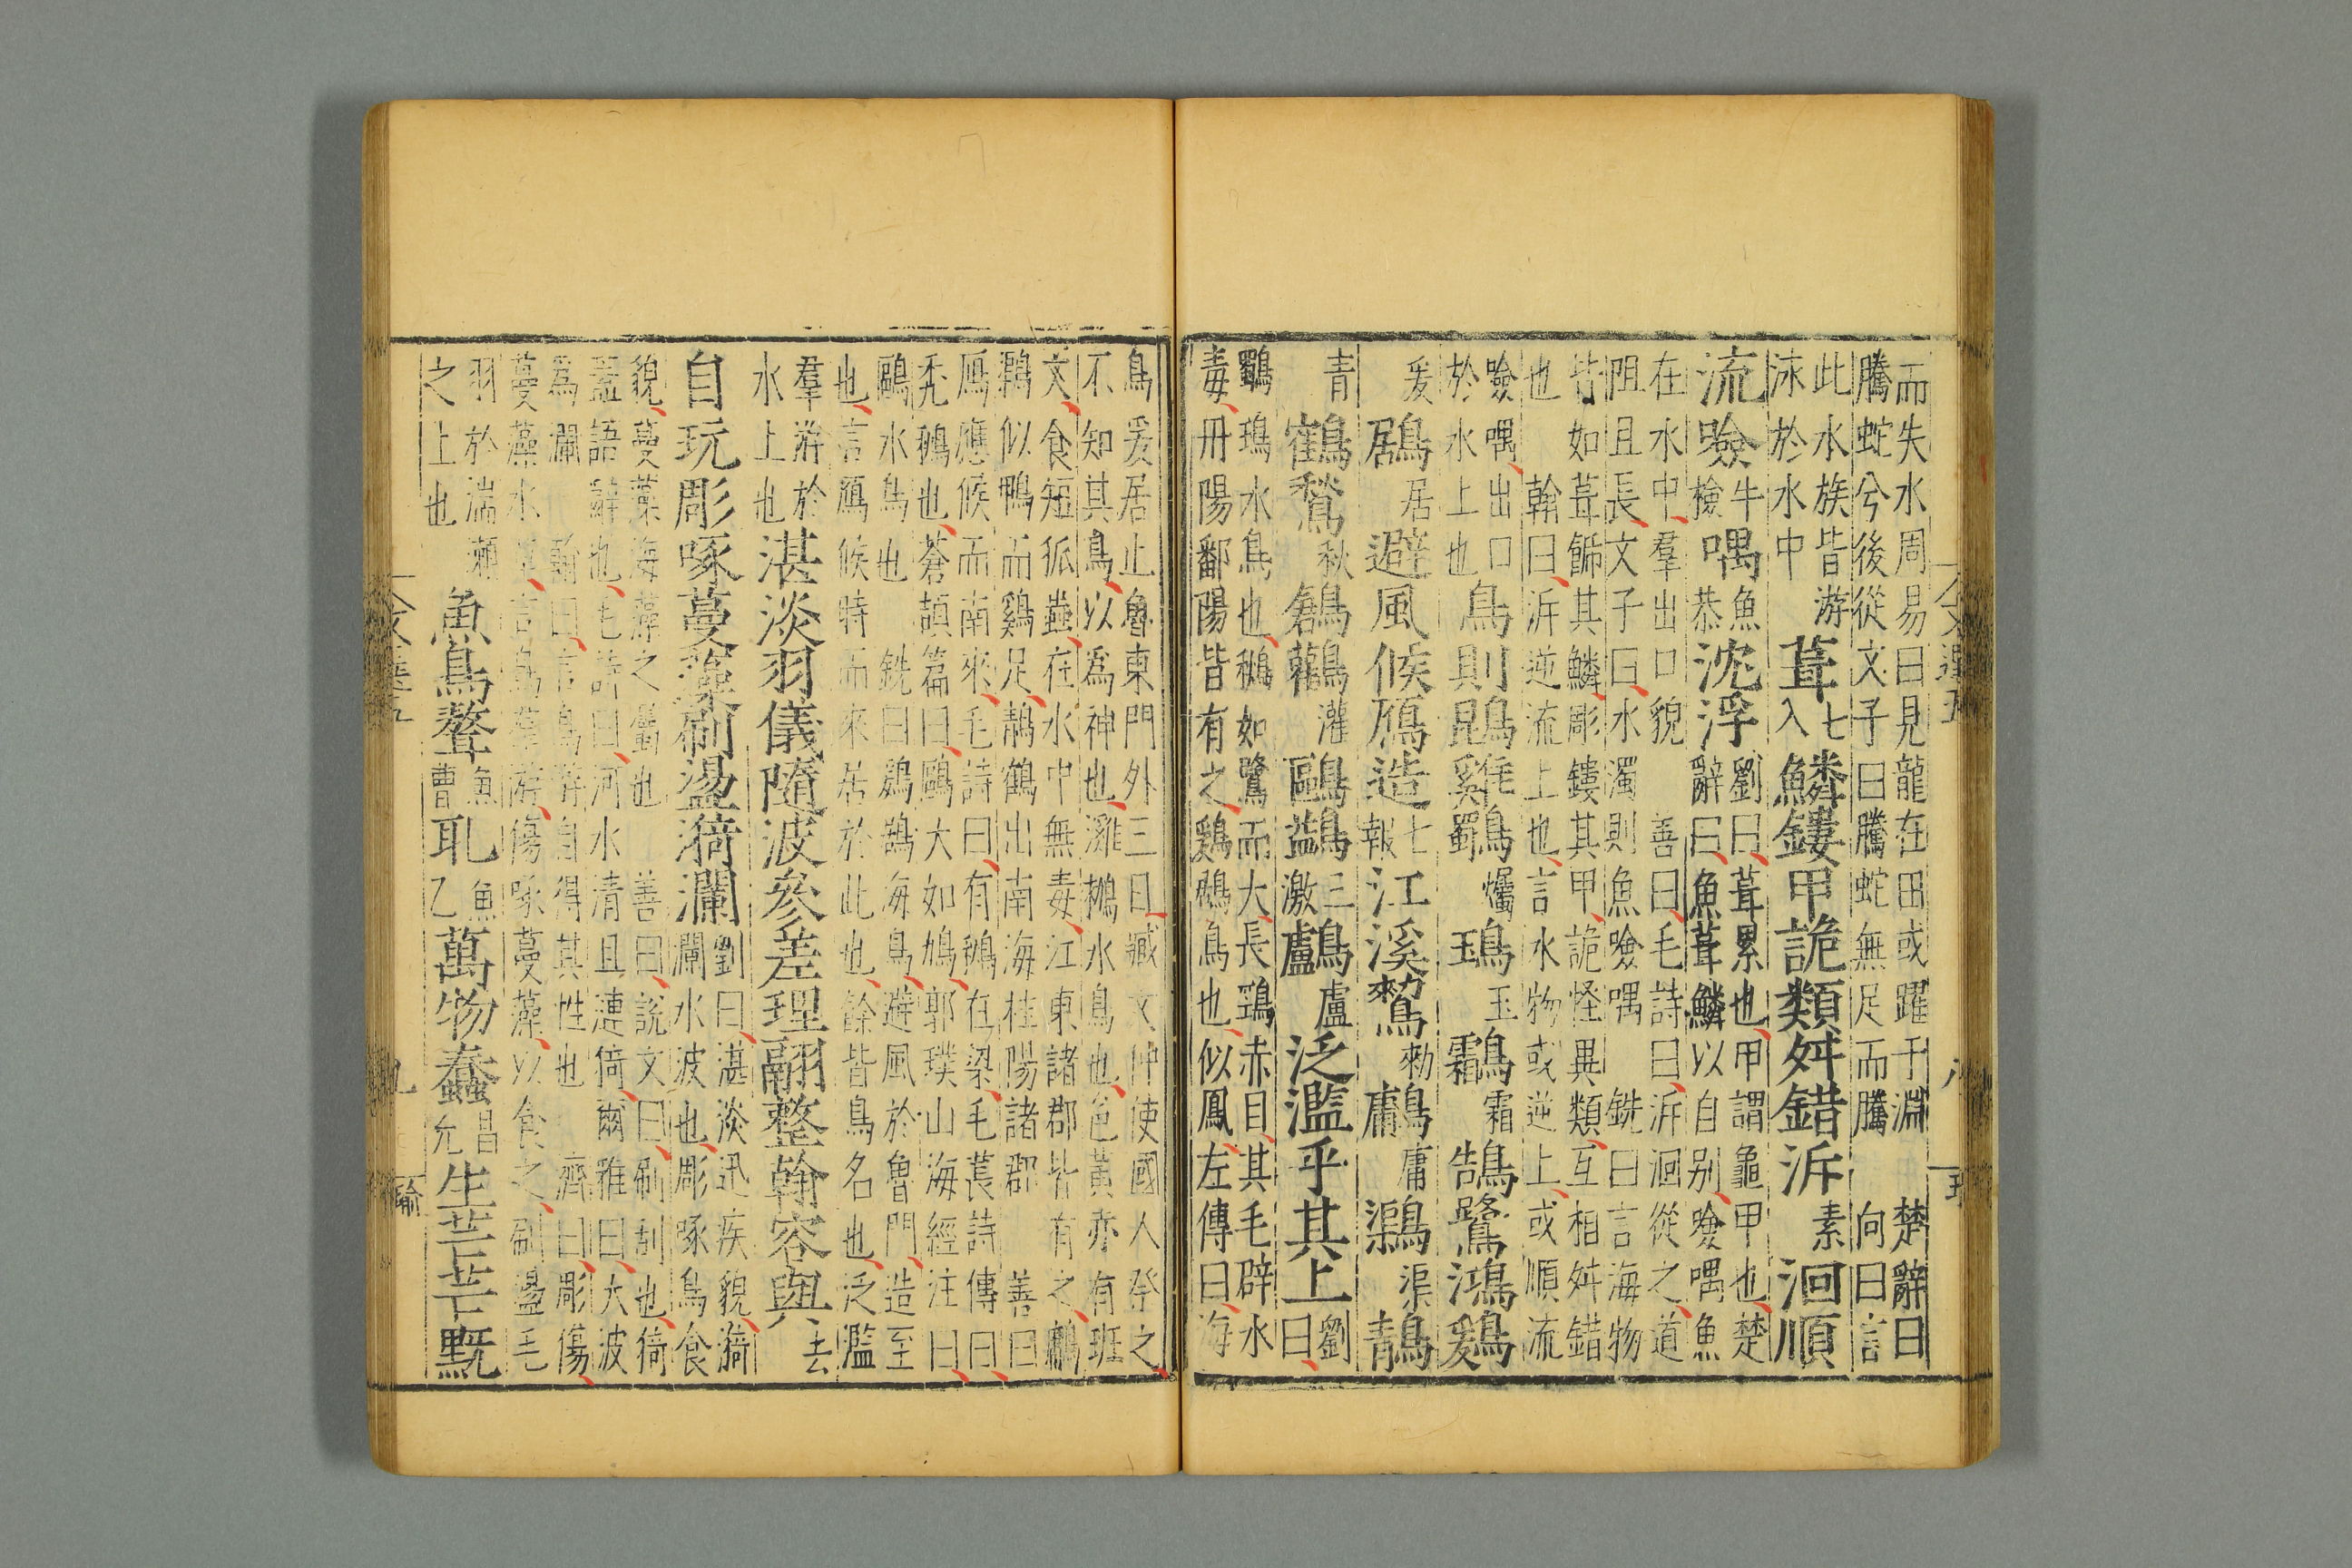 而失水周易曰見龍在田或躍于淵 楚辭曰
騰蛇兮後從文子曰騰蛇無足而騰 向曰言
此水族皆游
泳於水中
葺七入鱗鏤甲詭類舛錯泝素洄順
流噞牛檢喁魚恭沈浮劉曰葺累也甲謂龜甲也楚
辭曰魚葺鱗以自別噞喁魚
在水中羣出口貌 善曰毛詩曰泝洄從之道
阻且長文子曰水濁則魚噞喁 銑曰言海物
皆如葺飾其鱗彫鏤其甲詭怪異類互相舛錯
也 翰曰泝逆流上也言水物或逆上或順流
噞喁出口
於水上也
鳥則鵾雞鸀爥鳿玉鸘霜鵠鷺鴻鶢
爰鶋居避風候鴈造七報江溪鷘勑䴀庸𪆫渠鶄
青鶴鶖秋鶬鸛灌鷗鷁三激鸕盧泛濫乎其上劉曰
鸀鳿水鳥也鵝如鷺而大長鶏赤目其毛辟水
毒丹陽鄱陽皆有之鶢鶋鳥也似鳳左傳曰海
鳥爰居止魯東門外三日臧文仲使國人祭之
不知其鳥以爲神也㶉𪄠水鳥也色黃赤有班
文食短狐蠱在水中無毒江東諸郡皆有之䴀
似鴨而鷄足鶄鶴出南海桂陽諸郡 善曰
鴈應候而南來毛詩曰有鶖在梁毛萇詩傳曰
禿鶖也蒼頡篇曰鷗大如鳩郭璞山海經注曰
鷗水鳥也 銑曰鶢鶋海鳥避風於魯門造至
也言鴈候時而來居於此也餘皆鳥名也泛濫
羣游於
水上也
湛淡羽儀隨波參差理翮整翰容與去
自玩彫啄蔓藻刷盪漪瀾劉曰湛淡迅疾貌漪
瀾水波也彫啄鳥食
貌蔓藻海藻之屬也 善曰說文曰刷刮也漪
蓋語辭也毛詩曰河水清且漣猗爾雅曰大波
爲瀾 翰曰言鳥游自得其性也 濟曰彫傷
蔓藻水草言鳥游傷啄蔓藻以食之刷盪毛
羽於湍瀨
之上也
魚鳥聱魚曹耴魚乙萬物蠢昌允生芒芒黖